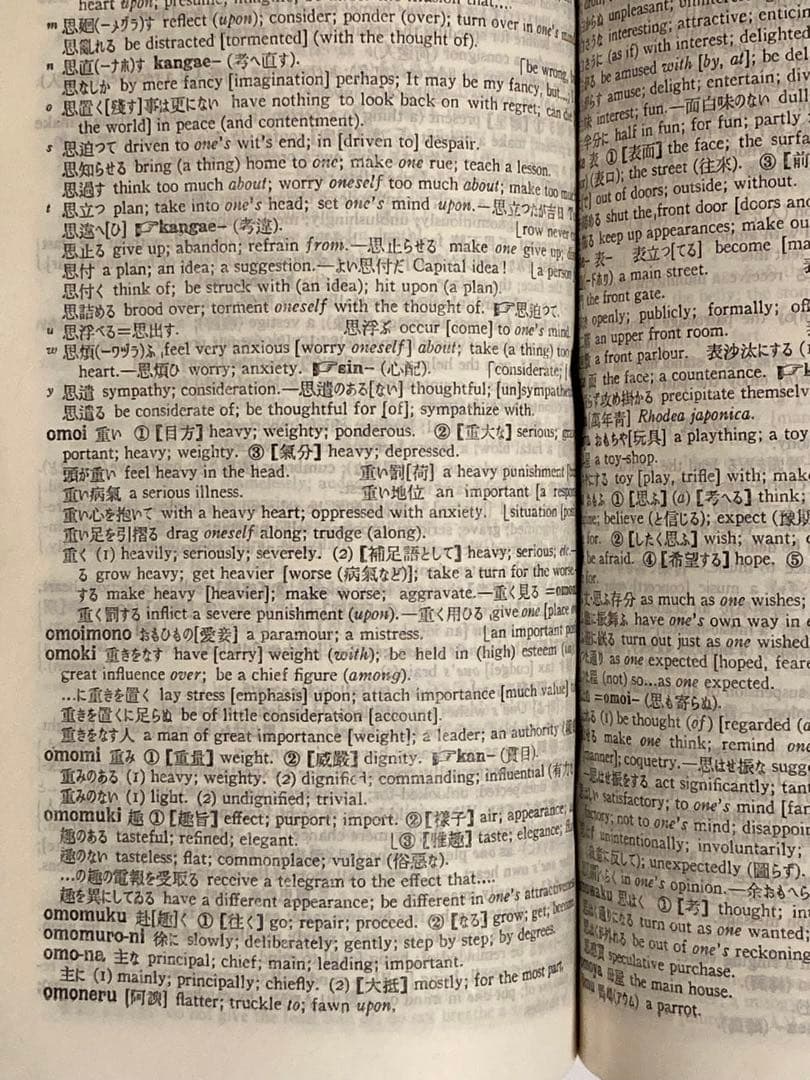 heart upon; presume; imagine;
m 思廻(ーメグラ)す reflect (upon); consider; ponder (over); turn over in one's mind
思亂れる be distracted [tormented] (with the thought of).
n 思直(ーナホ)す kangae- (考へ直す). [be wrong,
思なしか by mere fancy [imagination] perhaps; It may be my fancy, but...,
o 思置く[殘す]事は更にない have nothing to look back on with regret; can die
the world] in peace (and contentment).
s 思迫つて driven to one's wit's end; in [driven to] despair.
思知らせる bring (a thing) home to one; make one rue; teach a lesson.
思過す think too much about; worry oneself too much about; make too
t 思立つ plan; take into one's head; set one's mind upon.—思立つたが吉日
思違へ[ひ] ☞kangae- (考違). [row never
思止る give up; abandon; refrain from.—思止らせる make one give up;
思付 a plan; an idea; a suggestion.—よい思付だ Capital idea! [a person
思付く think of; be struck with (an idea); hit upon (a plan).
思詰める brood over; torment oneself with the thought of. ☞思迫つて.
u 思浮べる=思出す. 思浮ぶ occur [come] to one's mind.
w 思煩(ーワヅラ)ふ feel very anxious [worry oneself] about; take (a thing) too
heart.—思煩ひ worry; anxiety. ☞sin- (心配). [considerate;
y 思遣 sympathy; consideration.—思遣のある[ない] thoughtful; [un]sympathetic
思遣る be considerate of; be thoughtful for [of]; sympathize with.
omoi 重い ① 【目方】 heavy; weighty; ponderous. ② 【重大な】 serious;
portant; heavy; weighty. ③ 【氣分】 heavy; depressed.
頭が重い feel heavy in the head. 重い罰[荷] a heavy punishment
重い病氣 a serious illness. 重い地位 an important [a
重い心を抱いて with a heavy heart; oppressed with anxiety. [situation
重い足を引摺る drag oneself along; trudge (along).
重く (1) heavily; seriously; severely. (2) 【補足語として】 heavy; serious; etc.
る grow heavy; get heavier [worse (病氣など)]; take a turn for the worse.
する make heavy [heavier]; make worse; aggravate.—重く見る =
重く罰する inflict a severe punishment (upon).—重く用ひる give one [place
omoimono おもひもの[愛妾] a paramour; a mistress. [an important
omoki 重きをなす have [carry] weight (with); be held in (high) esteem
great influence over; be a chief figure (among).
...に重きを置く lay stress [emphasis] upon; attach importance [much value]
重きを置くに足らぬ be of little consideration [account].
重きをなす人 a man of great importance [weight]; a leader; an authority
omomi 重み ① 【重量】 weight. ② 【威嚴】 dignity. ☞kan- (貫目).
重みのある (1) heavy; weighty. (2) dignified; commanding; influential
重みのない (1) light. (2) undignified; trivial.
omomuki 趣 ① 【趣旨】 effect; purport; import. ② 【樣子】 air; appearance;
趣のある tasteful; refined; elegant. [③ 【雅趣】 taste; elegance;
趣のない tasteless; flat; commonplace; vulgar (俗惡な).
...の趣の電報を受取る receive a telegram to the effect that....
趣を異にしてゐる have a different appearance; be different in one's
omomuku 赴[趣]く ① 【往く】 go; repair; proceed. ② 【なる】 grow; get; become
omomuro-ni 徐に slowly; deliberately; gently; step by step; by degrees.
omo-na, 主な principal; chief; main; leading; important.
主に (1) mainly; principally; chiefly. (2) 【大抵】 mostly; for the most part.
omoneru [阿諛] flatter; truckle to; fawn upon,
unpleasant;
interesting; attractive;
(as if) with interest; delighted
be amused with [by, at];
amuse; delight; entertain;
interest; fun.—面白味のない dull
half in fun; for fun; partly
表 ① 【表面】 the face; the
(表口); the street (往來). ③
out of doors; outside; without.
shut the front door [doors
keep up appearances; make
表- 表立つ[てる] become
a main street.
the front gate.
openly; publicly; formally;
an upper front room.
a front parlour. 表沙汰にする
the face; a countenance.
攻め掛かる precipitate
[萬年靑] Rhodea japonica.
おもちや[玩具] a plaything; a toy
a toy-shop.
toy [play, trifle] with; make
おもふ ① 【思ふ】 (a) 【考へる】 think;
believe (と信じる); expect
for. ② 【したく思ふ】 wish; want;
be afraid. ④ 【希望する】 hope. ⑤
for.
思ふ存分 as much as one wishes;
に振舞ふ have one's own way in
turn out just as one wished
as one expected [hoped,
(not) so...as one expected.
=omoi- (思も寄らぬ).
(1) be thought (of) [regarded
make one think; remind one
coquetry.—思はせ振な
思はせ振をする act significantly;
satisfactory; to one's mind
not to one's mind;
unintentionally; involuntarily;
unexpectedly (圖らず).
in one's opinion.—
思はく ① 【考】 thought;
turn out as one wanted;
be out of one's reckoning
speculative purchase.
母屋 the main house.
a parrot.